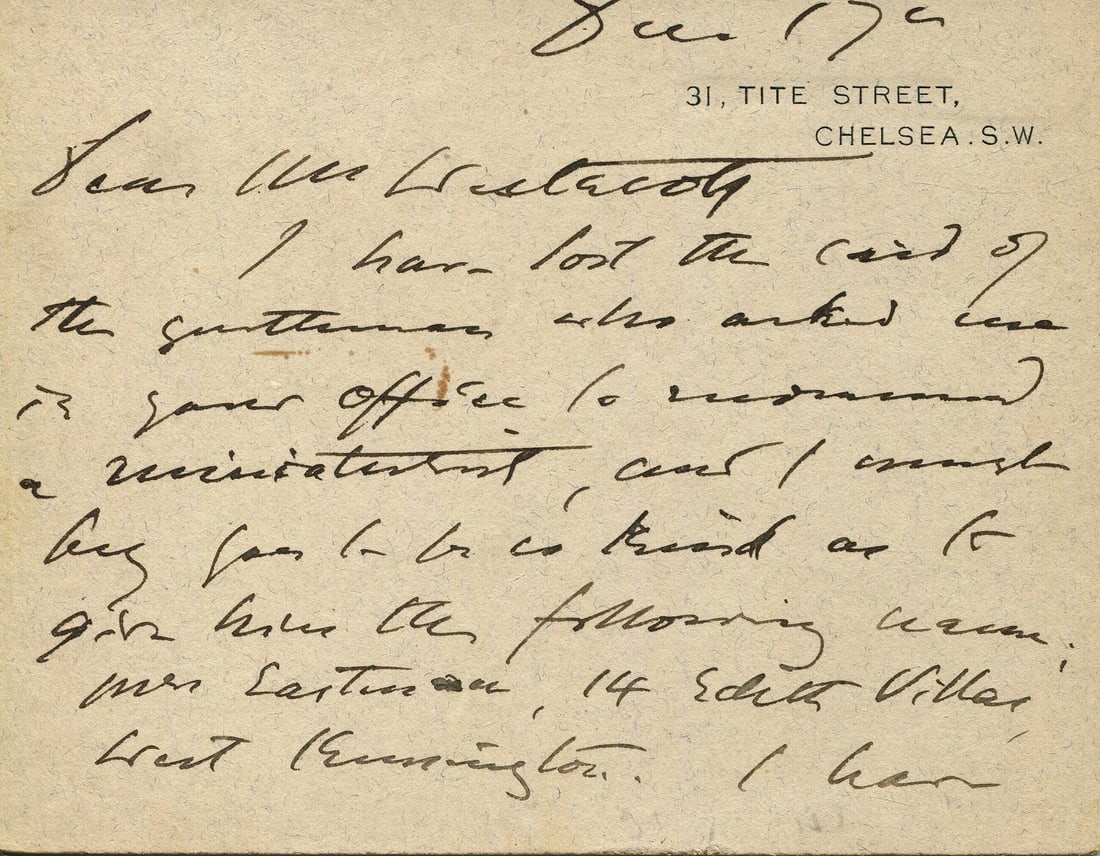 Dec 17th
31, TITE STREET,
CHELSEA. S.W.
Dear Mr Westacott
I have lost the card of
the gentleman who asked me
in your office to recommend
a miniaturist, and I must
beg you to be so kind as to
give him the following name:
Mrs Eastman, 14 Edith Villas,
West Kensington. I have